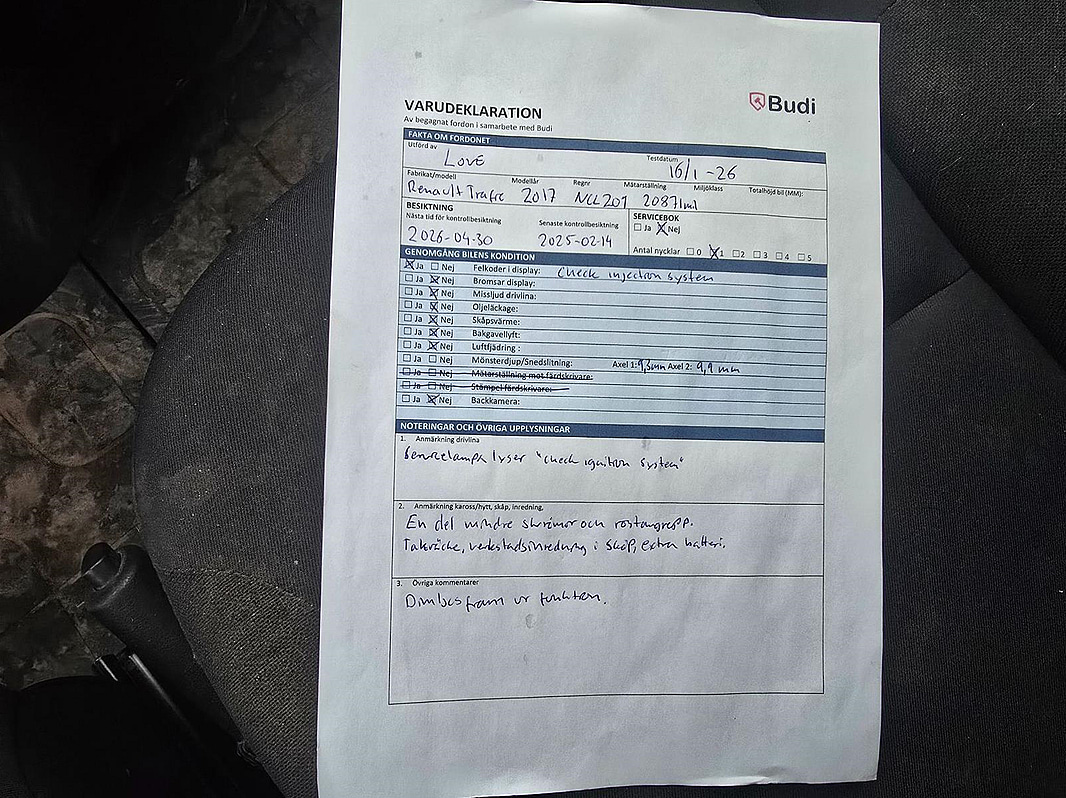 Budi
VARUDEKLARATION
Av begagnat fordon i samarbete med Budi
FAKTA OM FORDONET
Utförd av Testdatum
LOVE 16/1 -26
Fabrikat/modell Modellår Regnr Mätarställning Miljöklass Totalhöjd bil (MM):
Renault Trafic 2017 NCL201 20871mil
BESIKTNING SERVICEBOK
Nästa tid för kontrollbesiktning Senaste kontrollbesiktning ☐ Ja ☒ Nej
2026-04-30 2025-02-14
Antal nycklar ☐ 0 ☒ 1 ☐ 2 ☐ 3 ☐ 4 ☐ 5
GENOMGÅNG BILENS KONDITION
☒ Ja ☐ Nej Felkoder i display: Check injection system
☐ Ja ☒ Nej Bromsar display:
☐ Ja ☒ Nej Missljud drivlina:
☐ Ja ☒ Nej Oljeläckage:
☐ Ja ☒ Nej Skåpsvärme:
☐ Ja ☒ Nej Bakgavellyft:
☐ Ja ☒ Nej Luftfjädring :
☐ Ja ☐ Nej Mönsterdjup/Snedslitning: Axel 1: 9,3mm Axel 2: 9,9 mm
☐ Ja ☐ Nej Mätarställning mot färdskrivare:
☐ Ja ☐ Nej Stämpel färdskrivare:
☐ Ja ☒ Nej Backkamera:
NOTERINGAR OCH ÖVRIGA UPPLYSNINGAR
1. Anmärkning drivlina
Servicelampa lyser "check ignition system"
2. Anmärkning kaross/hytt, skåp, inredning,
En del mindre skråmor och rostangrepp.
Takräcke, verkstadsinredning i skåp, extra batteri.
3. Övriga kommentarer
Dimljus fram ur funktion.